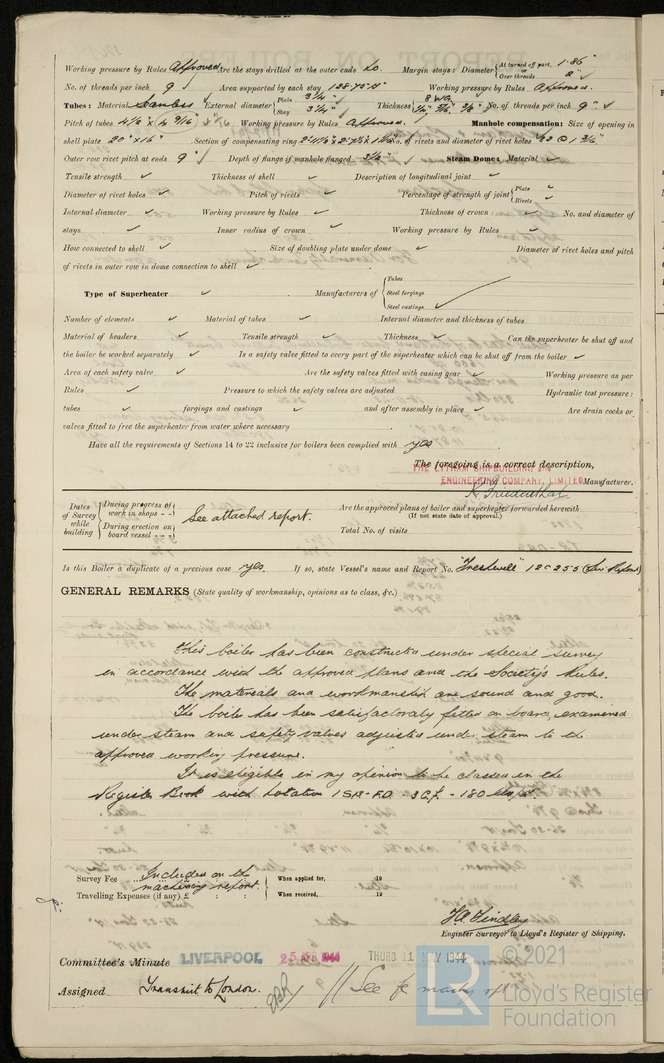 Working pressure by Rules Approved Are the stays drilled at the outer ends No. Margin stays: Diameter { At turned off part, 1.86" Over threads 2" ✓
No. of threads per inch 9 ✓ Area supported by each stay 128.75 □" Working pressure by Rules Approved.
Tubes: Material Seamless External diameter { Plain 3¼" ✓ Stay 3¼" ✓ Thickness { 8 WG No. of threads per inch 9" ✓
Pitch of tubes 4½" x 4 9/16" Working pressure by Rules Approved. Manhole compensation: Size of opening in
shell plate 20" x 16" Section of compensating ring No. of rivets and diameter of rivet holes
Outer row rivet pitch at ends 9" ✓ Depth of flange if manhole flanged Steam Dome: Material ✓
Tensile strength ✓ Thickness of shell ✓ Description of longitudinal joint ✓
Diameter of rivet holes ✓ Pitch of rivets ✓ Percentage of strength of joint { Plate ✓ Rivets ✓
Internal diameter ✓ Working pressure by Rules ✓ Thickness of crown ✓ No. and diameter of
stays ✓ Inner radius of crown ✓ Working pressure by Rules ✓
How connected to shell ✓ Size of doubling plate under dome ✓ Diameter of rivet holes and pitch
of rivets in outer row in dome connection to shell ✓
Type of Superheater ✓ Manufacturers of { Tubes Steel forgings Steel castings ✓
Number of elements ✓ Material of tubes ✓ Internal diameter and thickness of tubes
Material of headers ✓ Tensile strength ✓ Thickness ✓ Can the superheater be shut off and
the boiler be worked separately ✓ Is a safety valve fitted to every part of the superheater which can be shut off from the boiler ✓
Area of each safety valve ✓ Are the safety valves fitted with easing gear ✓ Working pressure as per
Rules ✓ Pressure to which the safety valves are adjusted Hydraulic test pressure:
tubes ✓ forgings and castings ✓ and after assembly in place ✓ Are drain cocks or
valves fitted to free the superheater from water where necessary
Have all the requirements of Sections 14 to 22 inclusive for boilers been complied with yes
The foregoing is a correct description,
THE LYTHAM SHIPBUILDING AND
ENGINEERING COMPANY, LIMITED Manufacturer.
Dates of Survey while building { During progress of work in shops - - During erection on board vessel - - } See attached report. Are the approved plans of boiler and superheater forwarded herewith
(If not state date of approval.)
Total No. of visits
Is this Boiler a duplicate of a previous case yes. If so, state Vessel's name and Report No. "Freshwell" 120255
GENERAL REMARKS (State quality of workmanship, opinions as to class, &c.)
This boiler has been constructed under special survey
in accordance with the approved plans and the Society's Rules.
The materials and workmanship are sound and good.
The boiler has been satisfactoraly fitted on board, examined
under steam and safety valves adjusted under steam to the
approved working pressure.
It is eligible in my opinion to be classed in the
Register Book with Notation 1SB-FD-3CF-180 lbs/□".
Survey Fee Included on the machinery report. When applied for, 19
Travelling Expenses (if any) £ : : When received, 19
H.A. Findley
Engineer Surveyor to Lloyd's Register of Shipping.
Committee's Minute LIVERPOOL 25 APR 1944 THURS 11 MAY 1944
Assigned Transmit to London. See
© 2021
LR
Lloyd's Register
Foundation